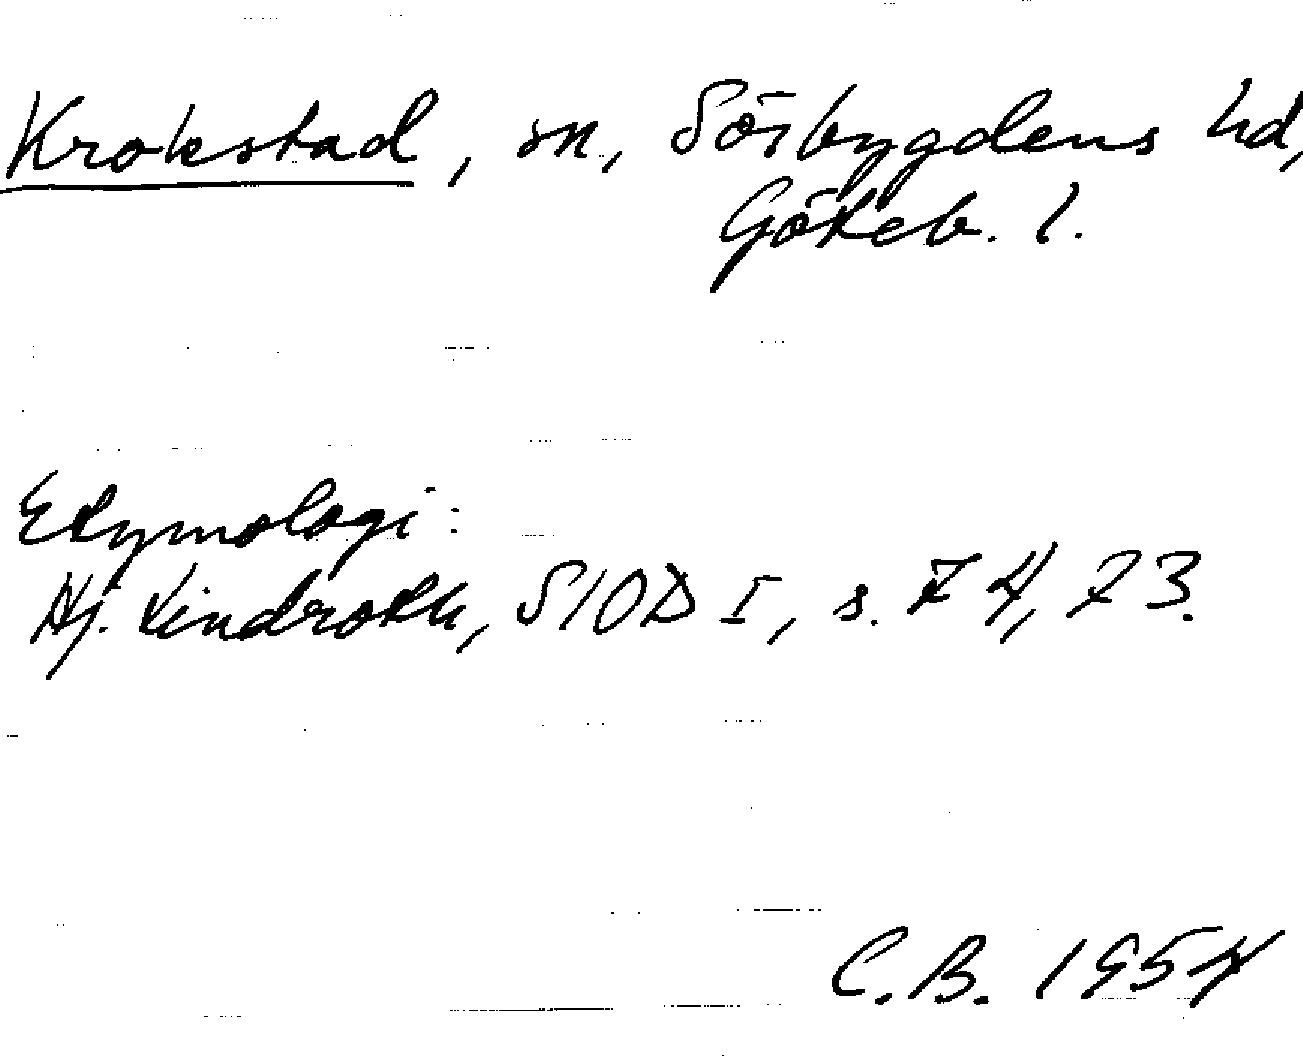 Krokstad, sn, Sörbygdens hd,
Göteb. l.
Etymologi:
Hj. Lindroth, SIOD I, s. 74, 73.
C.B. 1954